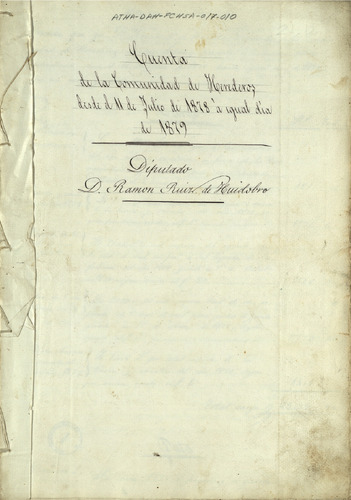 ATHA-DAH-FCHSA-017-010
Cuenta
de la Comunidad de Herederos
desde el 11 de Julio de 1878 á igual dia
de 1879
Diputado
D. Ramon Ruiz de Huidobro